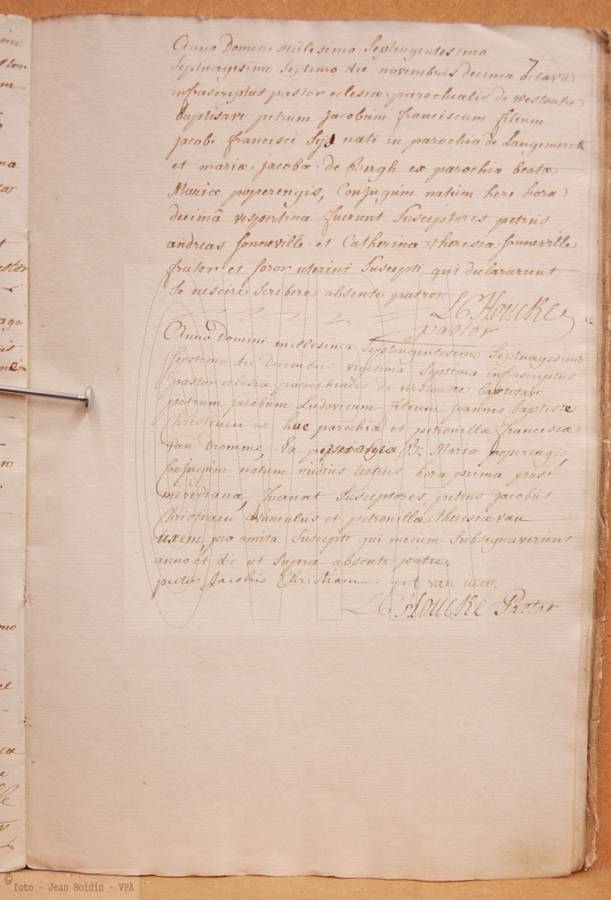 Anno Domini millesimo Septengentesimo
Septuagesimo Septimo die novembris decima octava
infrascriptus pastor eclesiæ parochialis de westoutre
baptisavi petrum Jacobum franciscum filium
jacobi francisci nati in parochia de Langemarck
et mariæ jacobæ de Bergh ex parochia beatæ
Mariæ poperengis, Conjugum natum here hora
decimâ vespertina fuerunt Susceptores petrus
andreas fonneville et Catherina theresia fonneville
frater et soror uterini Suscepti qui declararunt
Se nescire Scribere absente patre
Houcke
pastor
Anno Domini millesimo Septengentesimo Septuagesimo
Septimo die Decembris vigesima Septima infrascriptus
pastor eclesiæ parochialis de westoutre baptisavi
petrum jacobum Ludovicum filium joannis baptistæ
Christiaen ex hac parochia et petronilla francisca
van Dromme, Ex Mariæ poperengis,
Conjugum natum nudius tertius hora prima post
meridiana, fuerunt Susceptores petrus jacobus
Christiaen avunculus et petronilla theresia van
uxem, pro amita Suscepti qui mecum Subsignaverunt
anno et die ut Supra absente patre,
pieter Jacobus Christiaen van uxem
Houcke Pastor
© foto - Jean Boidin - VPA